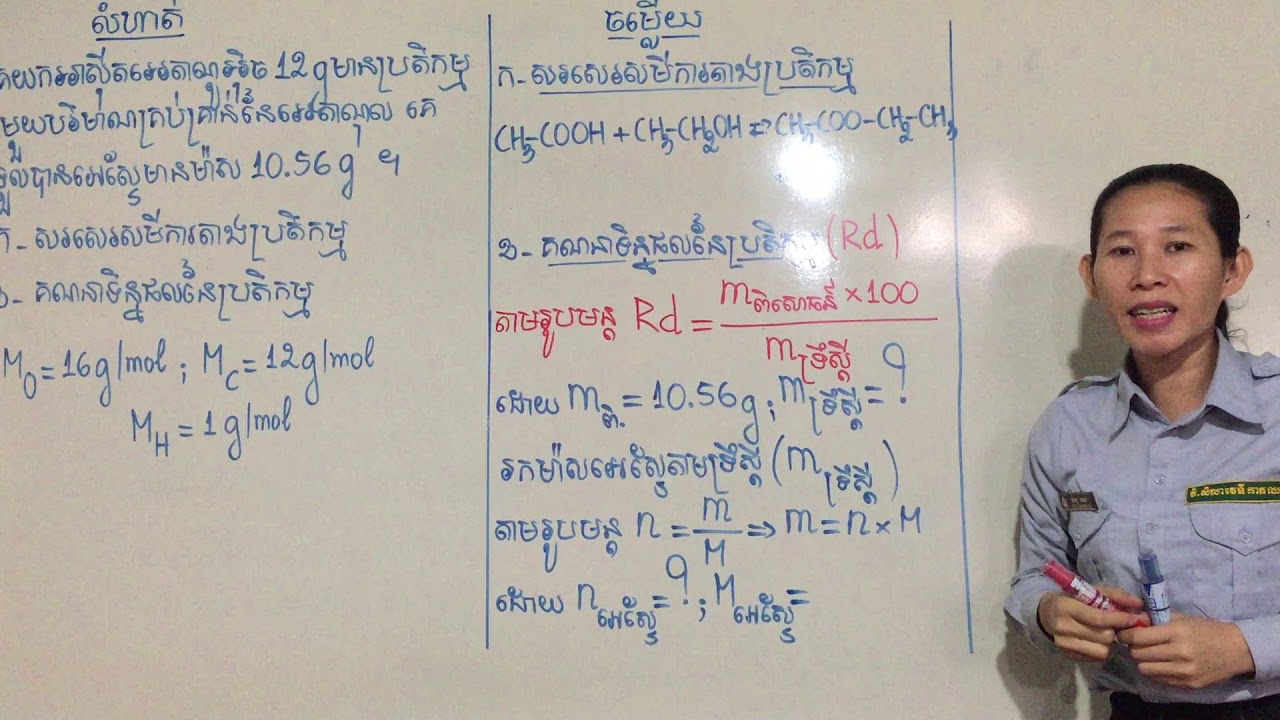 លំហាត់
គេយកអាស៊ីតអេតាណូអ៊ិច 12g មានប្រតិកម្ម
មួយបរិមាណគ្រប់គ្រាន់នៃអេតាណុល គេ
ទទួលបានអេស្ទែមានម៉ាស 10.56g ។
ក- សរសេរសមីការតាងប្រតិកម្ម
ខ- គណនាទិន្នផលនៃប្រតិកម្ម
M_O = 16g/mol ; M_C = 12g/mol
M_H = 1g/mol
ចម្លើយ
ក- សរសេរសមីការតាងប្រតិកម្ម
CH₃-COOH + CH₃-CH₂OH ⇌ CH₃-COO-CH₂-CH₃
ខ- គណនាទិន្នផលនៃប្រតិកម្ម (Rd)
តាមរូបមន្ត Rd = m ពិសោធន៍ × 100 / m ទ្រឹស្តី
ដោយ m ពិ. = 10.56g ; m ទ្រឹស្តី = ?
រកម៉ាសអេស្ទែតាមទ្រឹស្តី (m ទ្រឹស្តី)
តាមរូបមន្ត n = m/M ⇒ m = n × M
ដោយ n អេស្ទែ = ? ; M អេស្ទែ =